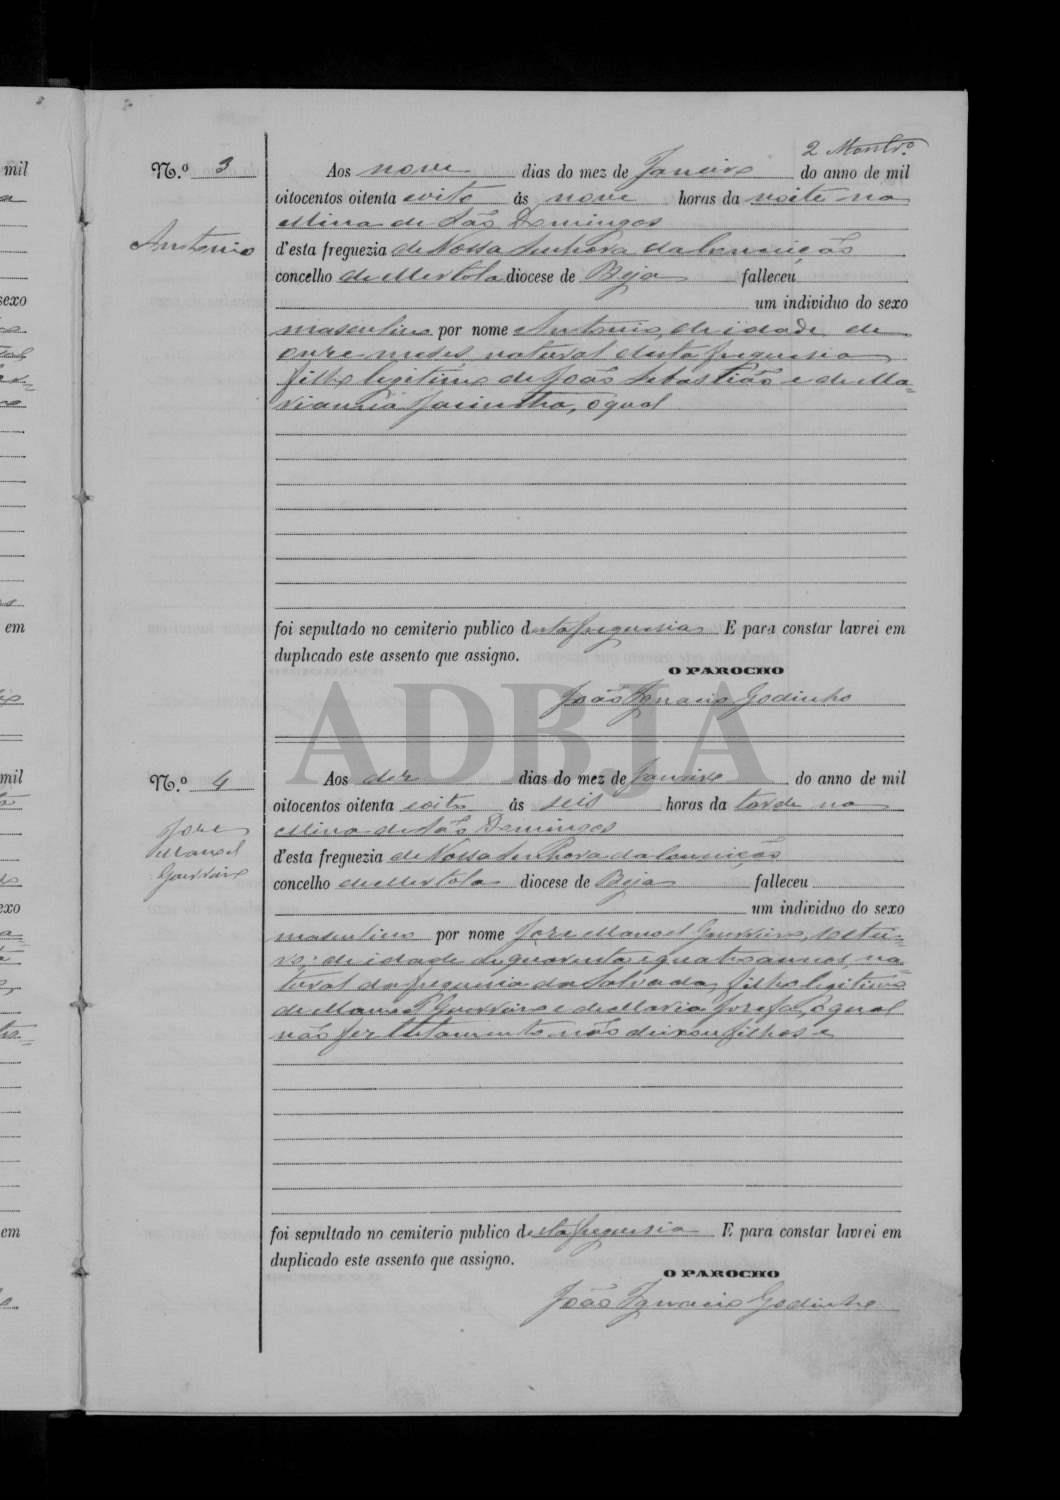 2 Montr.º
N.º 3
Aos nove dias do mez de Janeiro do anno de mil
oitocentos oitenta eoito ás nove horas da noite na
Mina de São Domingos
Antonio
d'esta freguezia de Nossa Senhora da Conceição
concelho de Mertola diocese de Beja falleceu
um individuo do sexo
masculino por nome Antonio, de idade de
onze meses, natural desta freguesia
filho legitimo de João Sebastião e de Ma=
rianna Jacintha, o qual
foi sepultado no cemiterio publico desta freguesia E para constar lavrei em
duplicado este assento que assigno.
O PAROCHO
João Ignacio Godinho
ADBJA
N.º 4
Aos dez dias do mez de Janeiro do anno de mil
oitocentos oitenta eoito ás seis horas da tarde na
Mina de São Domingos
Jose
Manoel
Guerreiro
d'esta freguezia de Nossa Senhora da Conceição
concelho de Mertola diocese de Beja falleceu
um individuo do sexo
masculino por nome Jose Manoel Guerreiro,
de idade de quarenta e quatro annos, na=
tural da freguesia da Salvada, filho legitimo
de Manoel Guerreiro e de Maria Josefa, o qual
não fez testamento não deixou filhos e
foi sepultado no cemiterio publico desta freguesia E para constar lavrei em
duplicado este assento que assigno.
O PAROCHO
João Ignacio Godinho